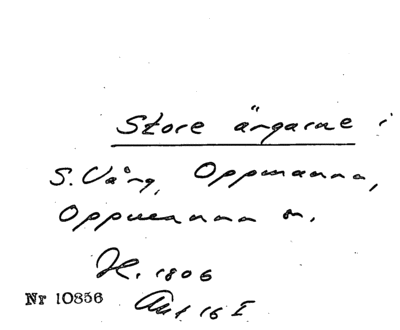 Store ärgarne i
S. Vång, Oppmanna,
Oppmanna sn.
H. 1806
Nr 10856 Akt 16 I